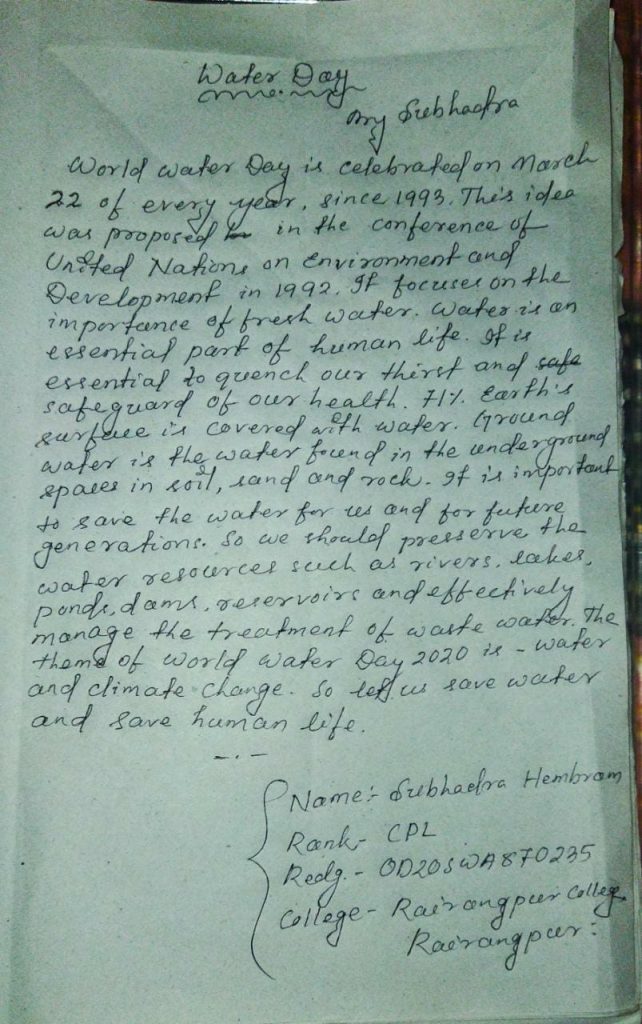 Water Day
My Subhadra
World water Day is celebrated on March
22 of every year, since 1993. This idea
was proposed in the conference of
United Nations on Environment and
Development in 1992. It focuses on the
importance of fresh water. Water is an
essential part of human life. It is
essential to quench our thirst and safe
safeguard of our health. 71% Earth's
surface is covered with water. Ground
water is the water found in the underground
spaces in soil, sand and rock. It is important
to save the water for us and for future
generations. So we should presserve the
water resources such as rivers, lakes,
ponds, dams, reservoirs and effectively
manage the treatment of waste water. The
theme of World Water Day 2020 is - water
and climate change. So let us save water
and save human life.
Name:- Subhadra Hembram
Rank- CPL
Redg.- OD20SWA870235
College- Rairangpur College,
Rairangpur: